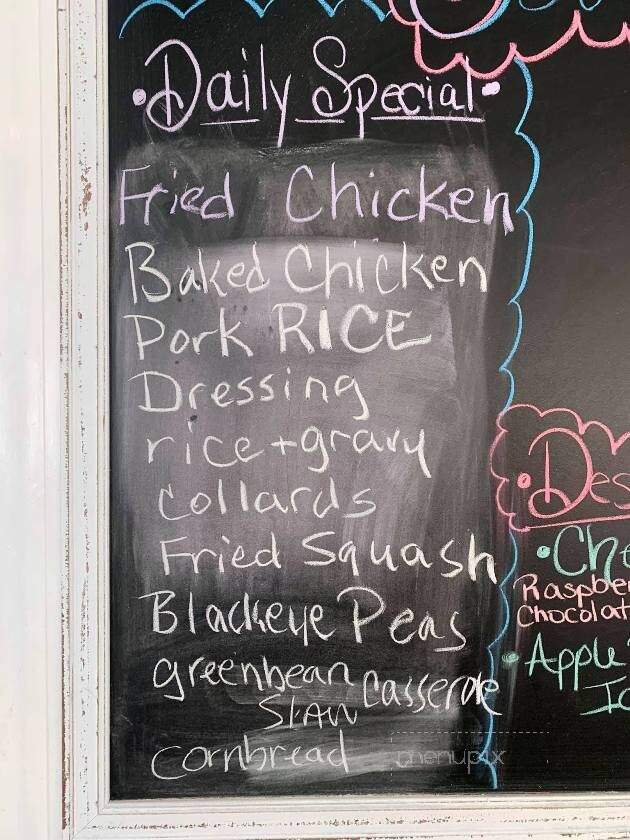 Daily Special
Fried Chicken
Baked Chicken
Pork RICE
Dressing
rice + gravy
collards
Fried Squash
Blackeye Peas
greenbean casserole
SlAW
cornbread
menupix
Des
Che
Raspber
Chocolat
Apple